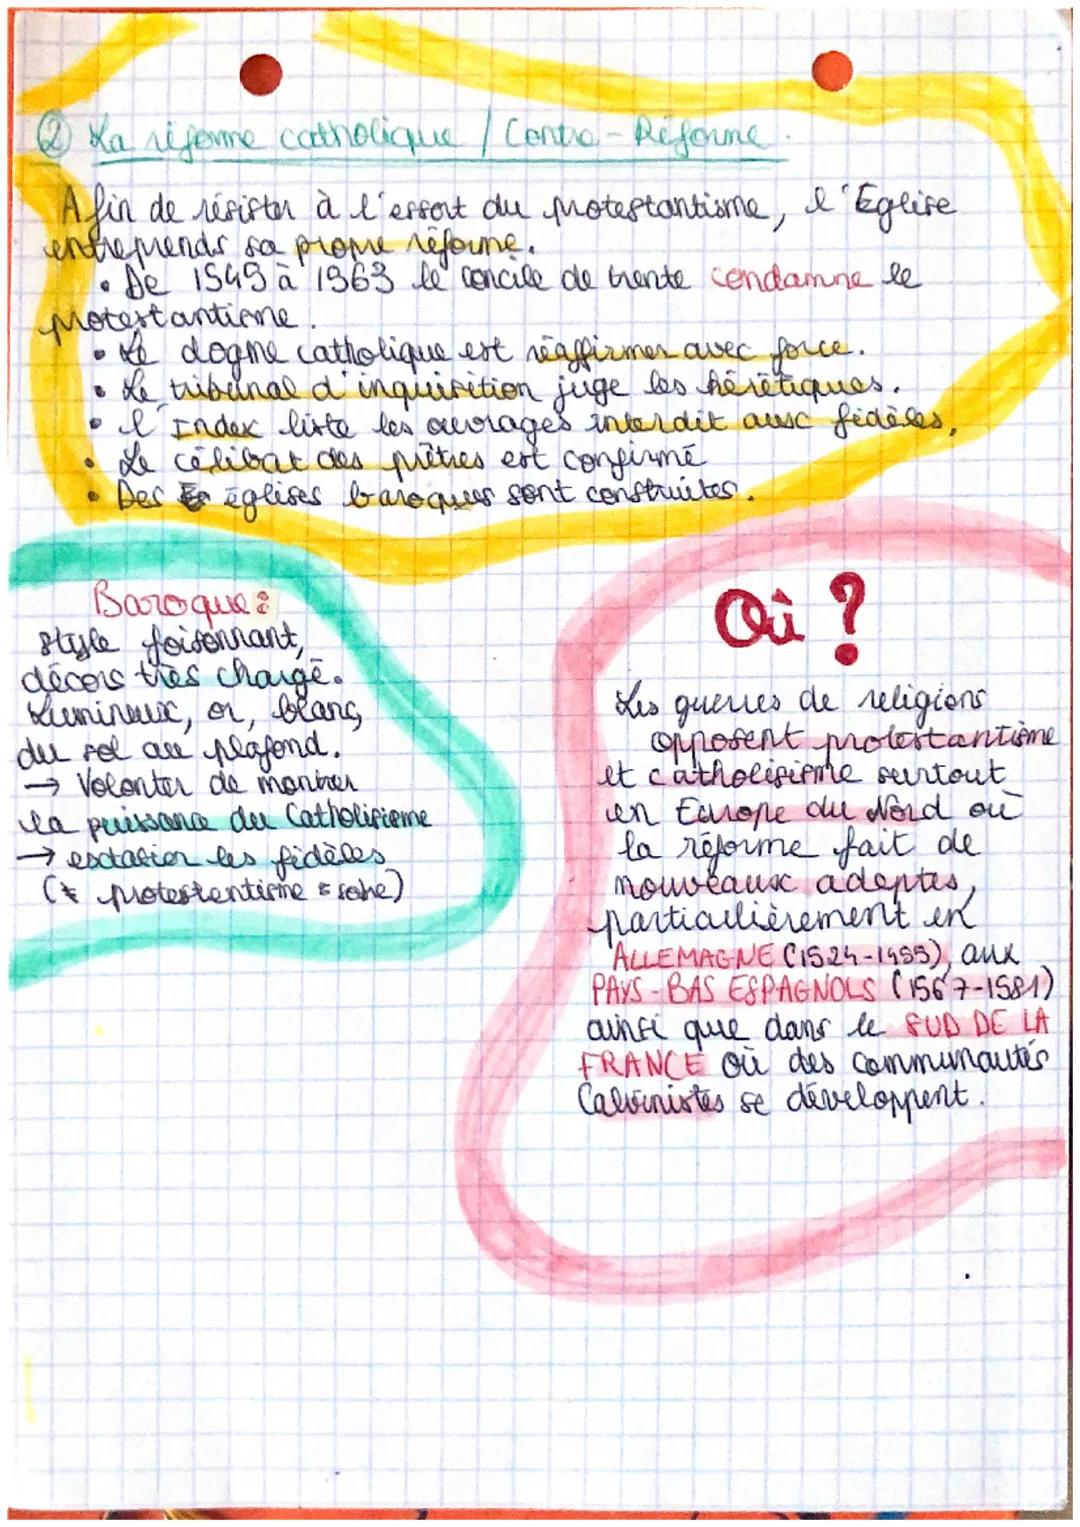 ② La réforme catholique / Contre-Réforme.
Afin de résister à l'essort du protestantisme, l'Église
entreprends sa propre réforme.
• De 1545 à 1563 le concile de trente condamne le
protestantisme.
• Le dogme catholique est réaffirmer avec force.
• Le tribunal d'inquisition juge les hérétiques.
• l'Index liste les ouvrages interdit aux fidèles,
• Le célibat des prêtres est confirmé
• Des églises baroques sont construites.
Baroque :
style foisonnant,
décors très chargé.
Lumineux, or, blanc,
du sol au plafond.
→ Volonter de montrer
la puissance du Catholisisme
→ extasier les fidèles
(≠ protestentisme = sobre)
Où ?
Les guerres de religions
opposent protestantisme
et catholisisme surtout
en Europe du Nord où
la réforme fait de
nouveaux adeptes,
particulièrement en
ALLEMAGNE (1524-1555), aux
PAYS-BAS ESPAGNOLS (1567-1581)
ainsi que dans le SUD DE LA
FRANCE où des communautés
Calvinistes se développent.